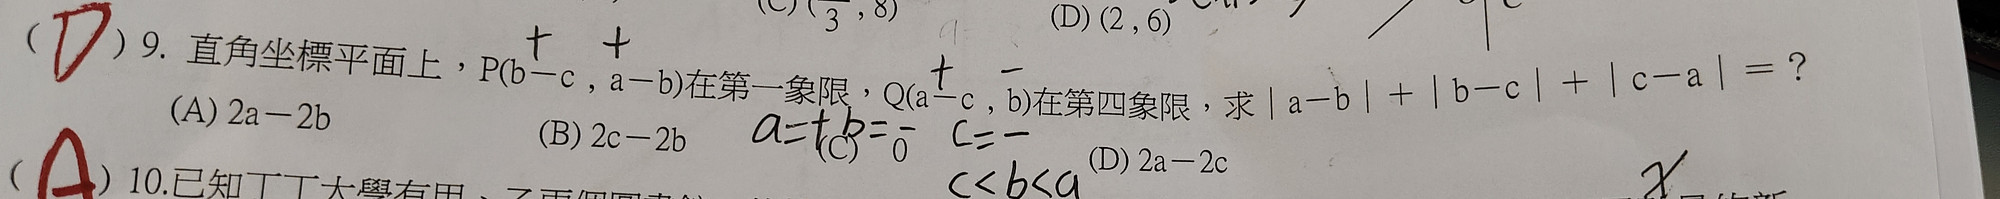 (D) (2 , 6)
(D) 9. 直角坐標平面上，P(b－c , a－b)在第一象限，Q(a－c , b)在第四象限，求｜a－b｜＋｜b－c｜＋｜c－a｜＝？
+ +
+ －
(A) 2a－2b
(B) 2c－2b
(C) 0
(D) 2a－2c
a=+ b=－ c=－
c<b<a
(A) 10.已知丁丁大學有甲、乙兩個圖書館
x